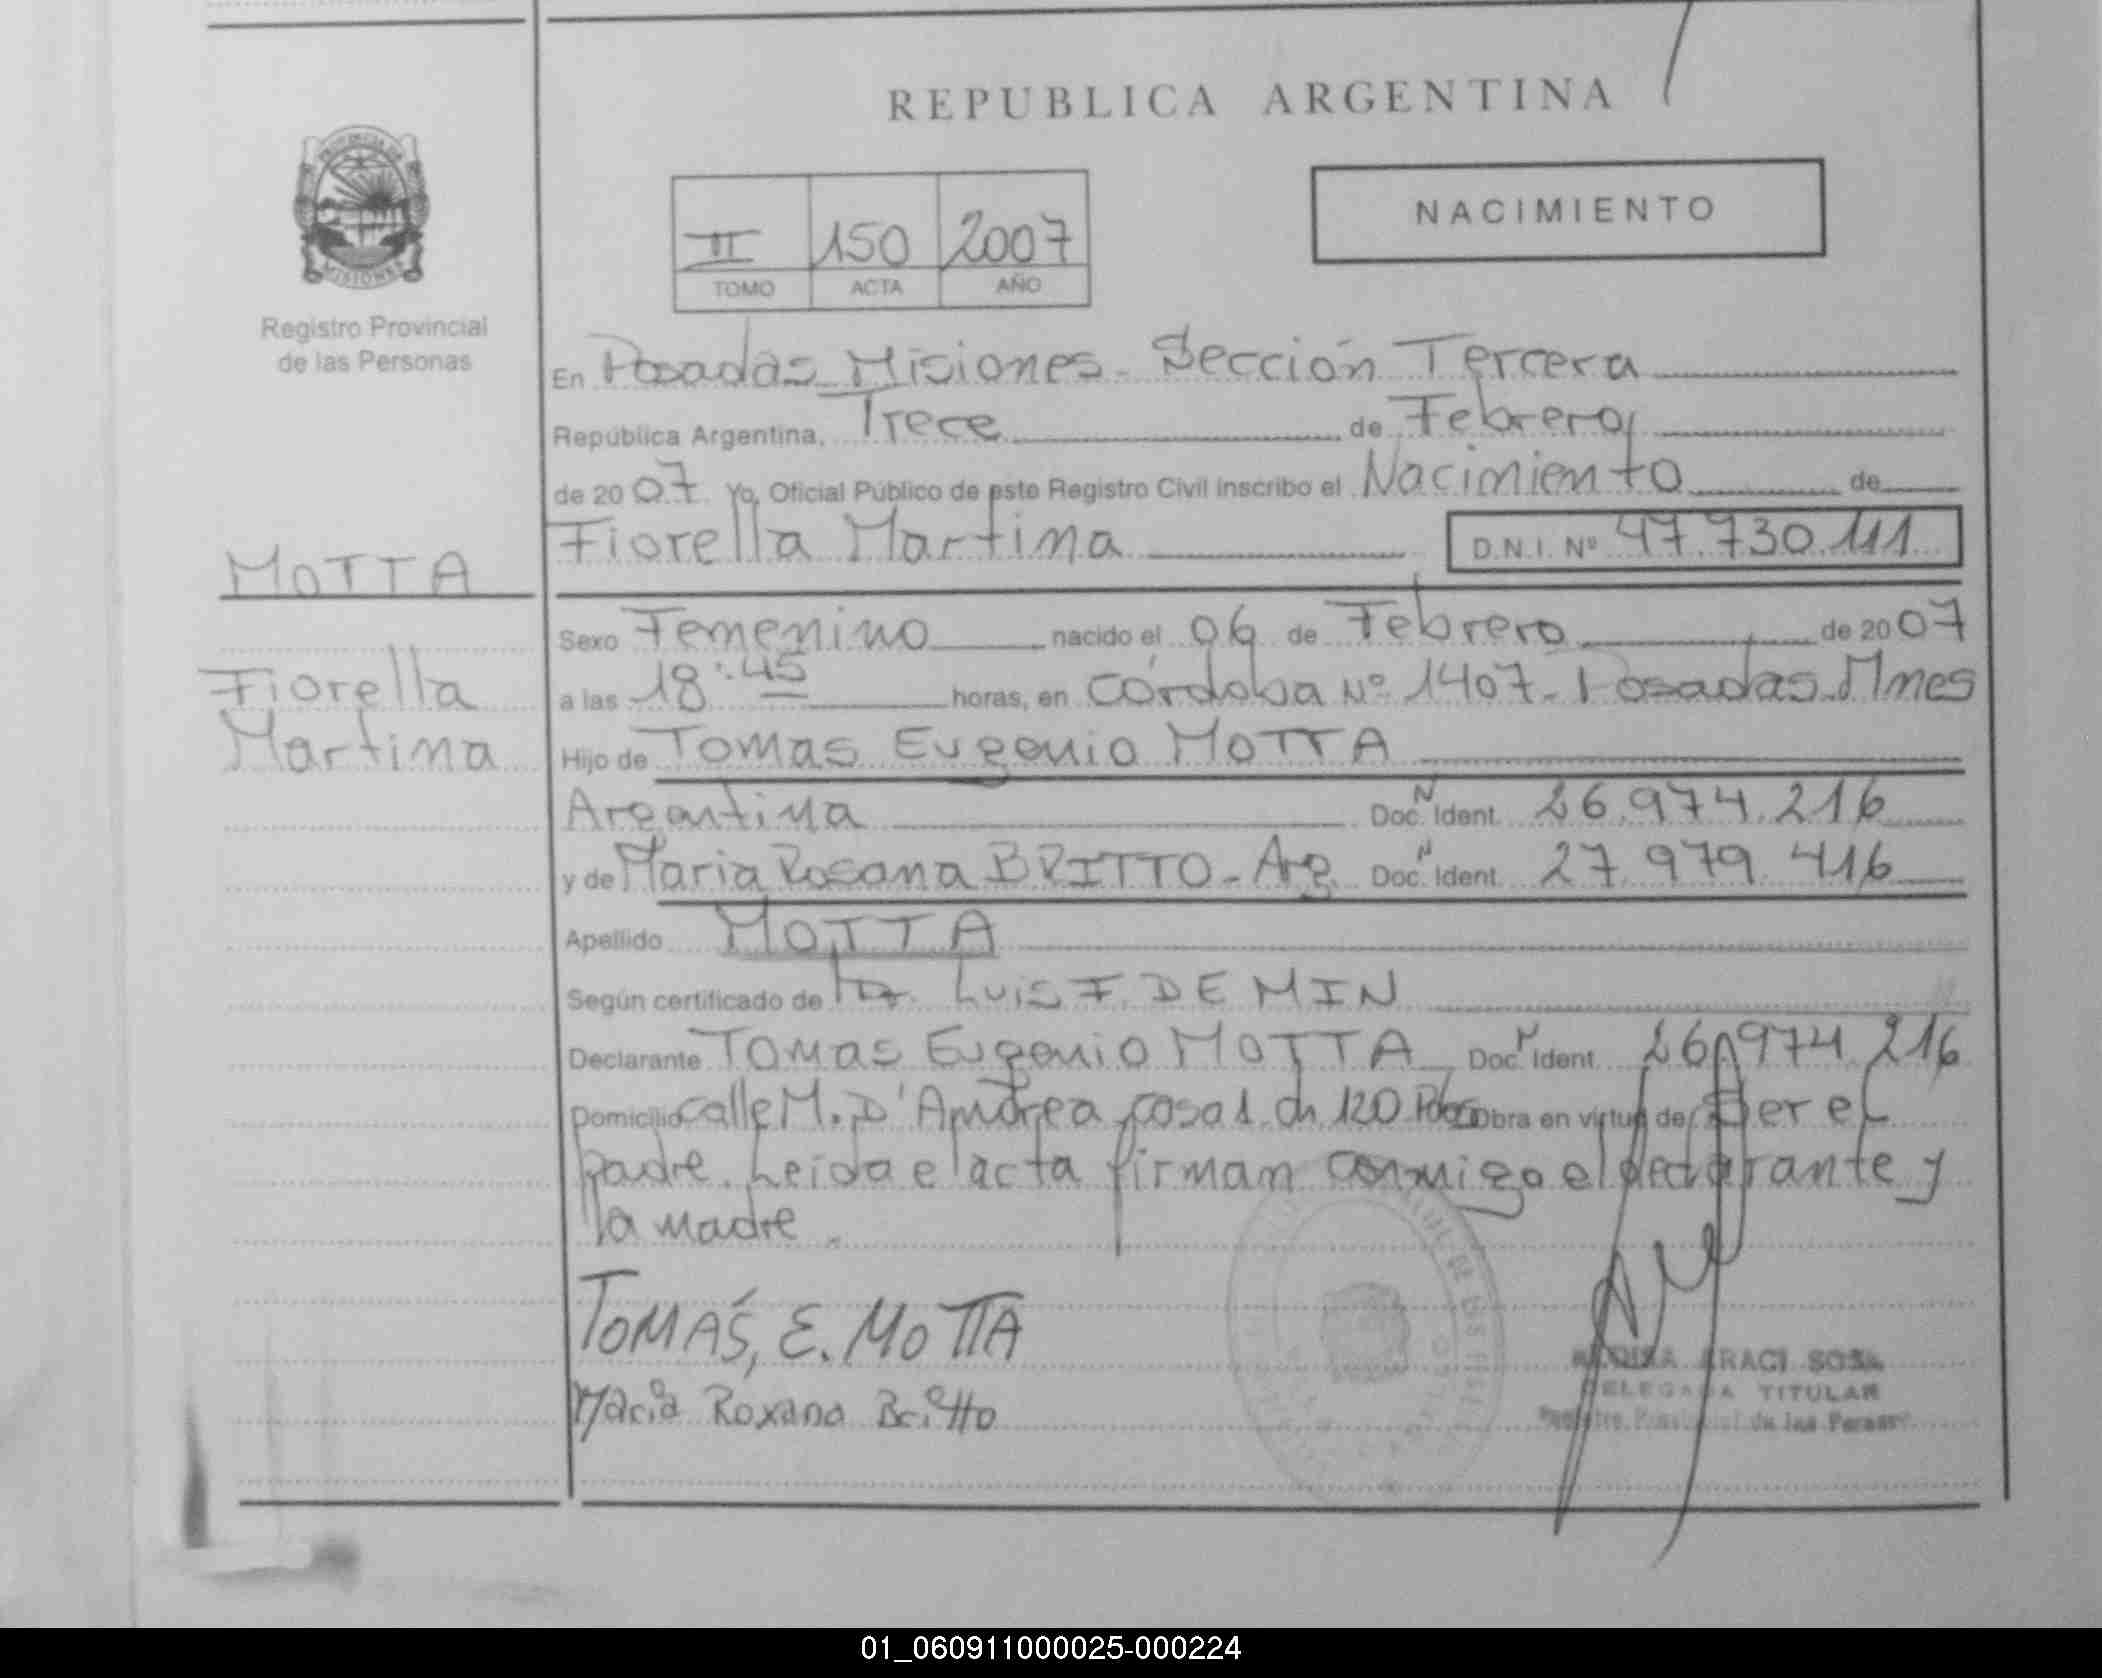 REPUBLICA ARGENTINA
PROVINCIA DE
MISIONES
Registro Provincial
de las Personas
II 150 2007
TOMO ACTA AÑO
NACIMIENTO
En Posadas Misiones - Sección Tercera
República Argentina, Trece de Febrero
de 2007 Yo, Oficial Público de este Registro Civil inscribo el Nacimiento de
Fiorella Martina D.N.I. Nº 47.730.111
MOTTA
Sexo Femenino nacido el 06 de Febrero de 2007
Fiorella
Martina
a las 18:45 horas, en Córdoba Nº 1407 - Posadas Mnes
Hijo de Tomas Eugenio MOTTA
Argentina Doc. N Ident. 26.974.216
y de Maria Rosana BRITTO - Arg. Doc. N Ident. 27.979.416
Apellido MOTTA
Según certificado de Dr. Luis F. DEMIN
Declarante Tomas Eugenio MOTTA Doc. N Ident. 26.974.216
Domicilio calle M. D'Andrea casa 1 ch 120 Pdas Obra en virtud de Ser el
padre. Leida el acta firman conmigo el declarante y
la madre.
TOMÁS, E. MOTTA
Maria Roxana Britto
ARACI SOSA
DELEGADA TITULAR
Registro Provincial de las Personas
01_060911000025-000224